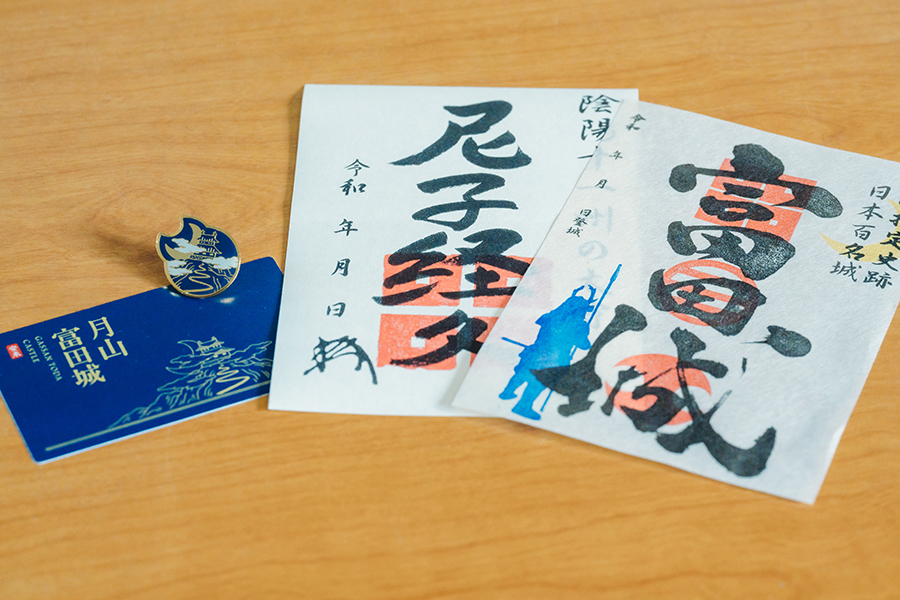 月山
富田城
GASSAN TODA
CASTLE
陰陽
州の
尼子経久
令和 年 月 日
指定史跡
日本百名城
富田城
令和 年 月 日登城